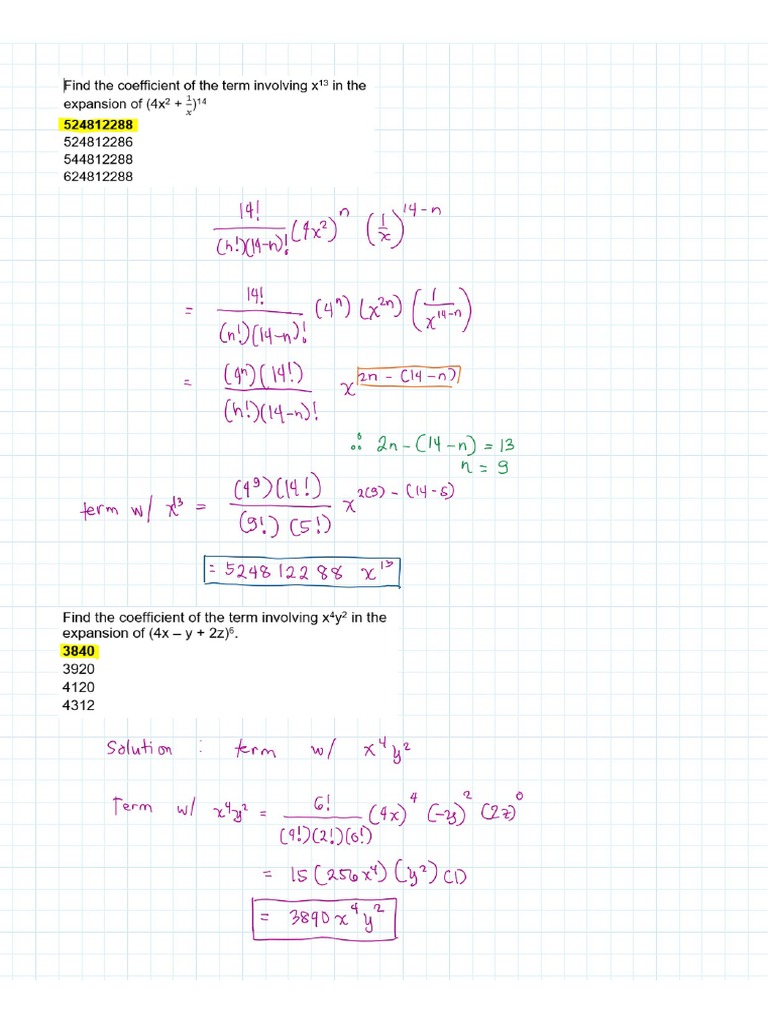 Find the coefficient of the term involving x¹³ in the
expansion of (4x² + 1/x)¹⁴
524812288
524812286
544812288
624812288
14! / (n!)(14-n)! (4x²)ⁿ (1/x)¹⁴⁻ⁿ
= 14! / (n!)(14-n)! (4ⁿ) (x²ⁿ) (1/x¹⁴⁻ⁿ)
= (4ⁿ)(14!) / (n!)(14-n)! x^(2n - (14-n))
∴ 2n-(14-n) = 13
n = 9
term w/ x¹³ = (4⁹)(14!) / (9!)(5!) x^(2(9) - (14-5))
= 524812288 x¹³
Find the coefficient of the term involving x⁴y² in the
expansion of (4x – y + 2z)⁶.
3840
3920
4120
4312
Solution : term w/ x⁴y²
Term w/ x⁴y² = 6! / (4!)(2!)(0!) (4x)⁴ (-y)² (2z)⁰
= 15 (256x⁴) (y²) (1)
= 3840 x⁴y²